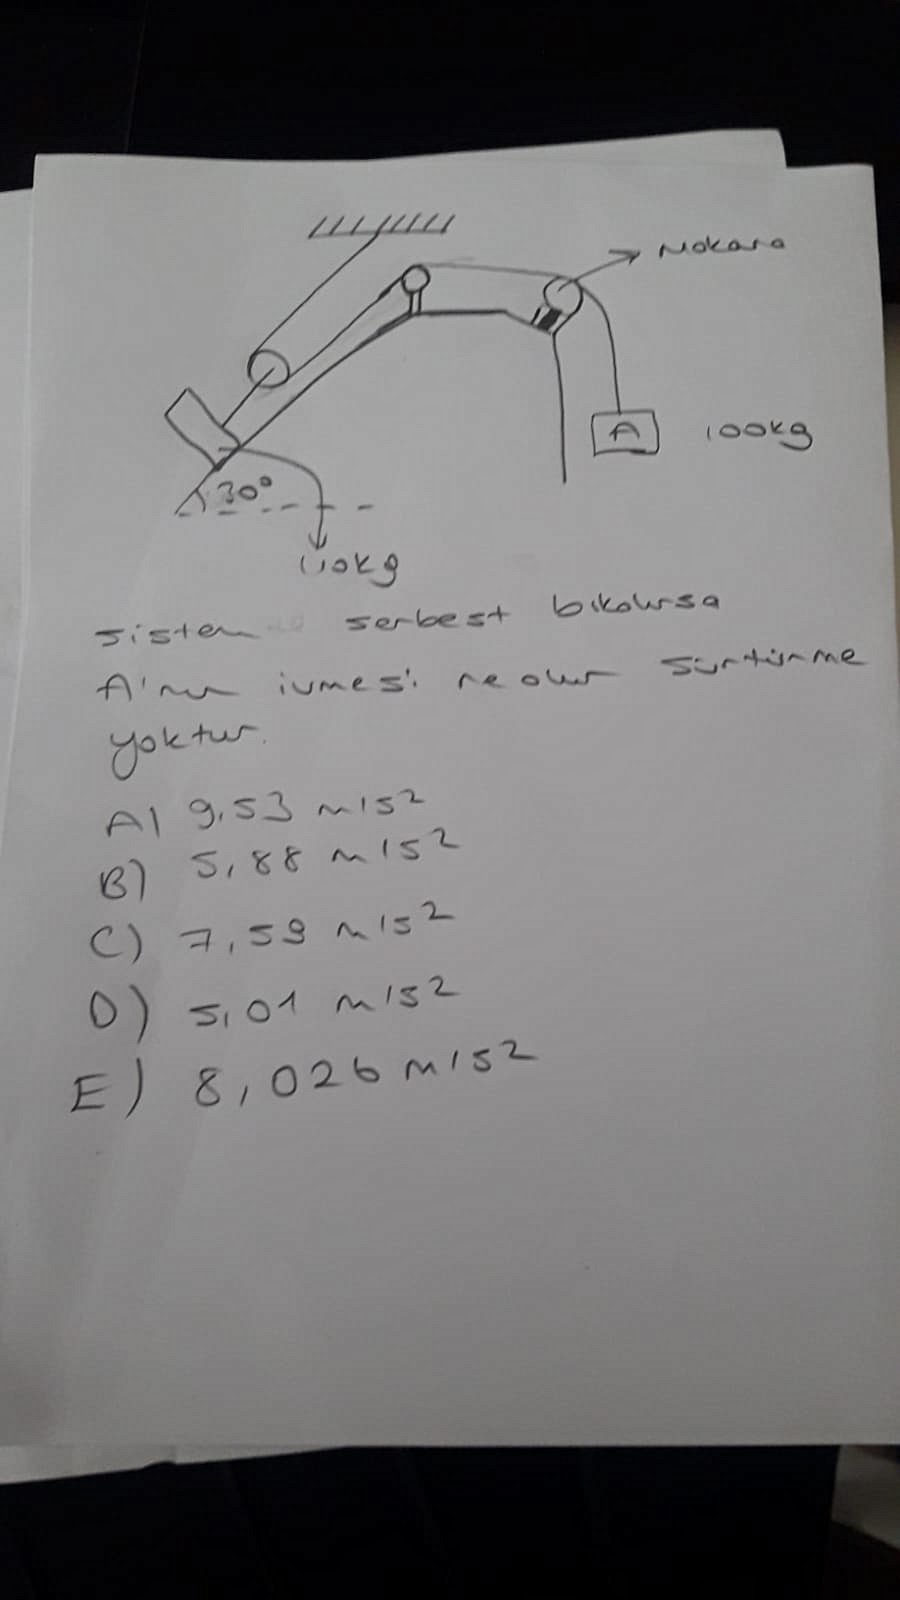 Makara
A 100kg
30°
110kg
Sistem serbest bıkolırsa
A'nın ivmesi ne olur sürtünme
yoktur.
A) 9,53 m/s2
B) 5,88 m/s2
C) 7,59 m/s2
D) 5,01 m/s2
E) 8,026 m/s2